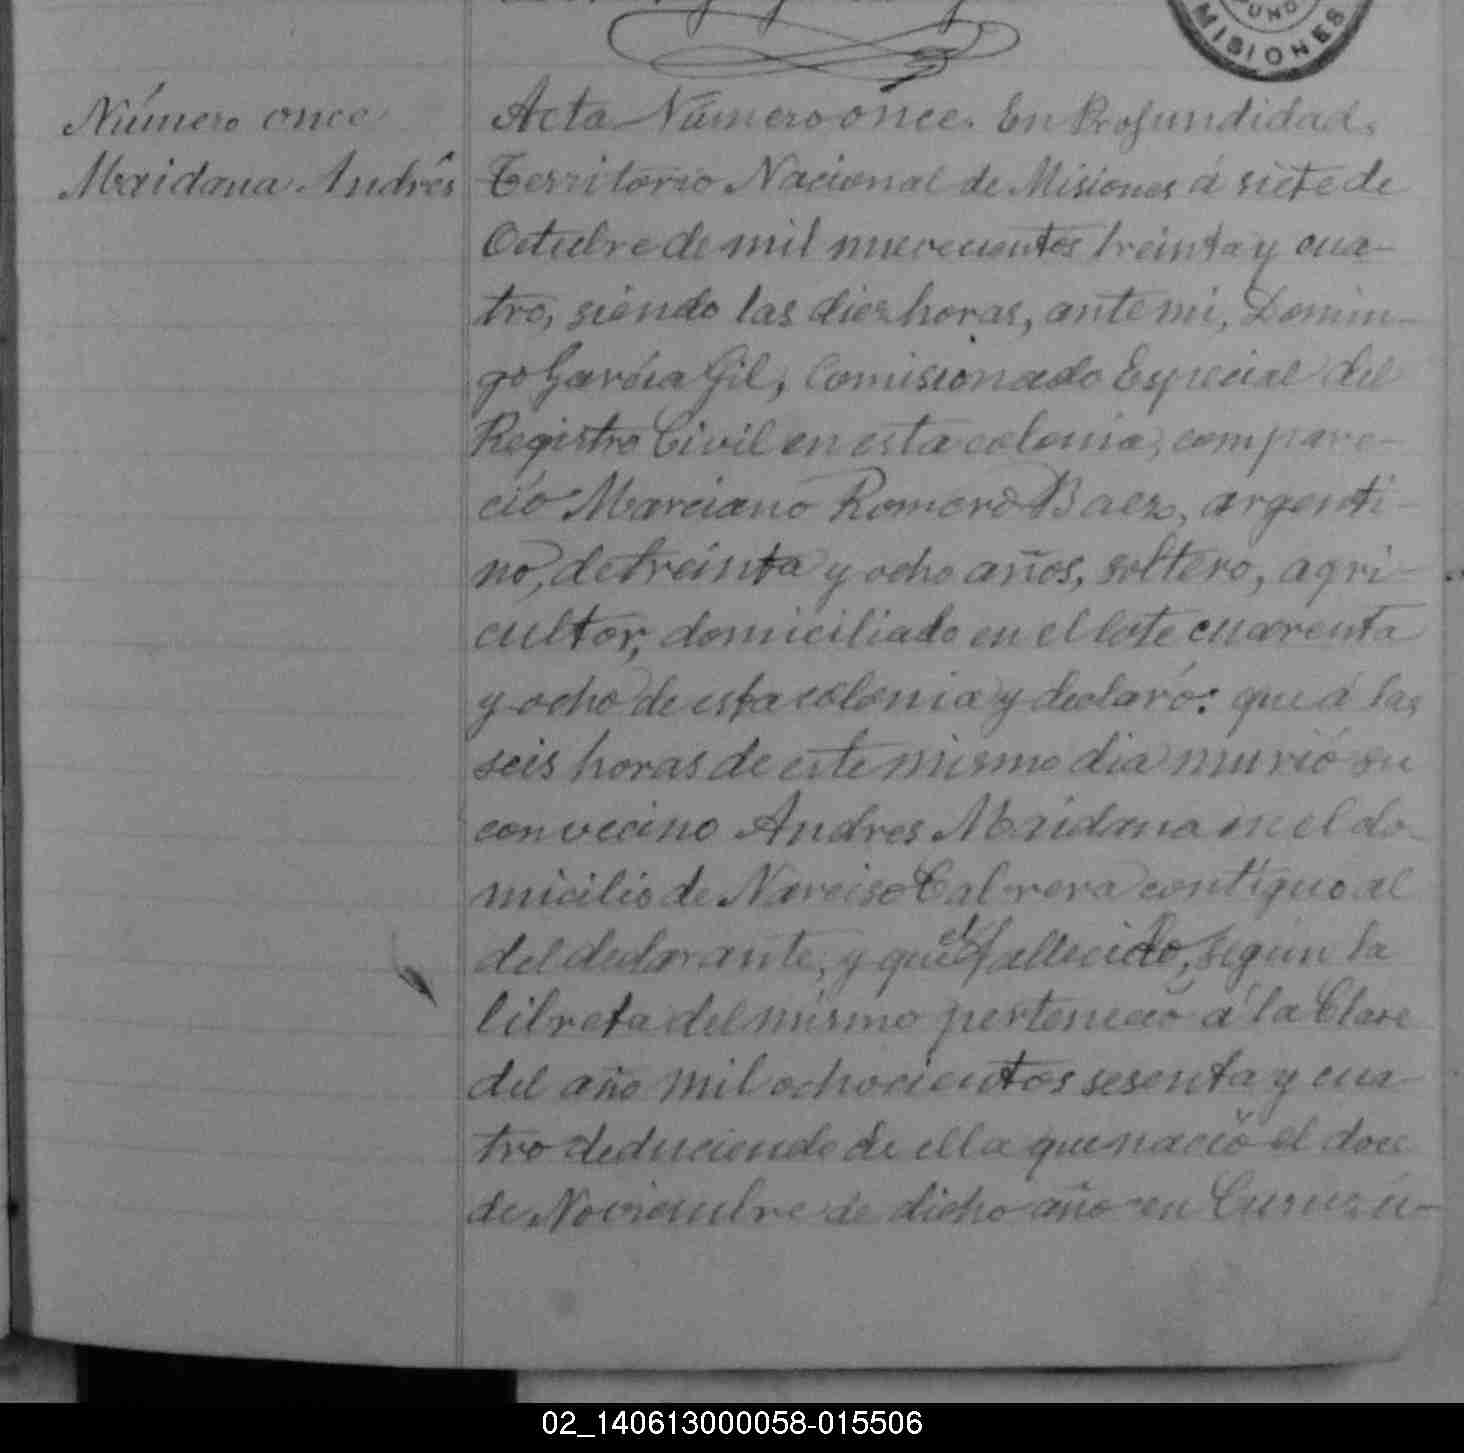 MISIONES
Número once
Maidana Andrés
Acta Número once. En Profundidad,
Territorio Nacional de Misiones á siete de
Octubre de mil nuevecientos treinta y cua-
tro, siendo las diez horas, ante mi, Domin-
go García Gil, Comisionado Especial del
Registro Civil en esta colonia, compare-
ció Marciano Romero Baez, argenti-
no, de treinta y ocho años, soltero, agri-
cultor, domiciliado en el lote cuarenta
y ocho de esta colonia y declaró: que á las
seis horas de este mismo dia murió su
convecino Andres Maidana en el do-
micilio de Narciso Cabrera contiguo al
del declarante, y que el fallecido, según la
libreta del mismo perteneció á la Clase
del año mil ochocientos sesenta y cua-
tro deduciendo de ella que nació el doce
de Noviembre de dicho año en Curuzú-
02_140613000058-015506